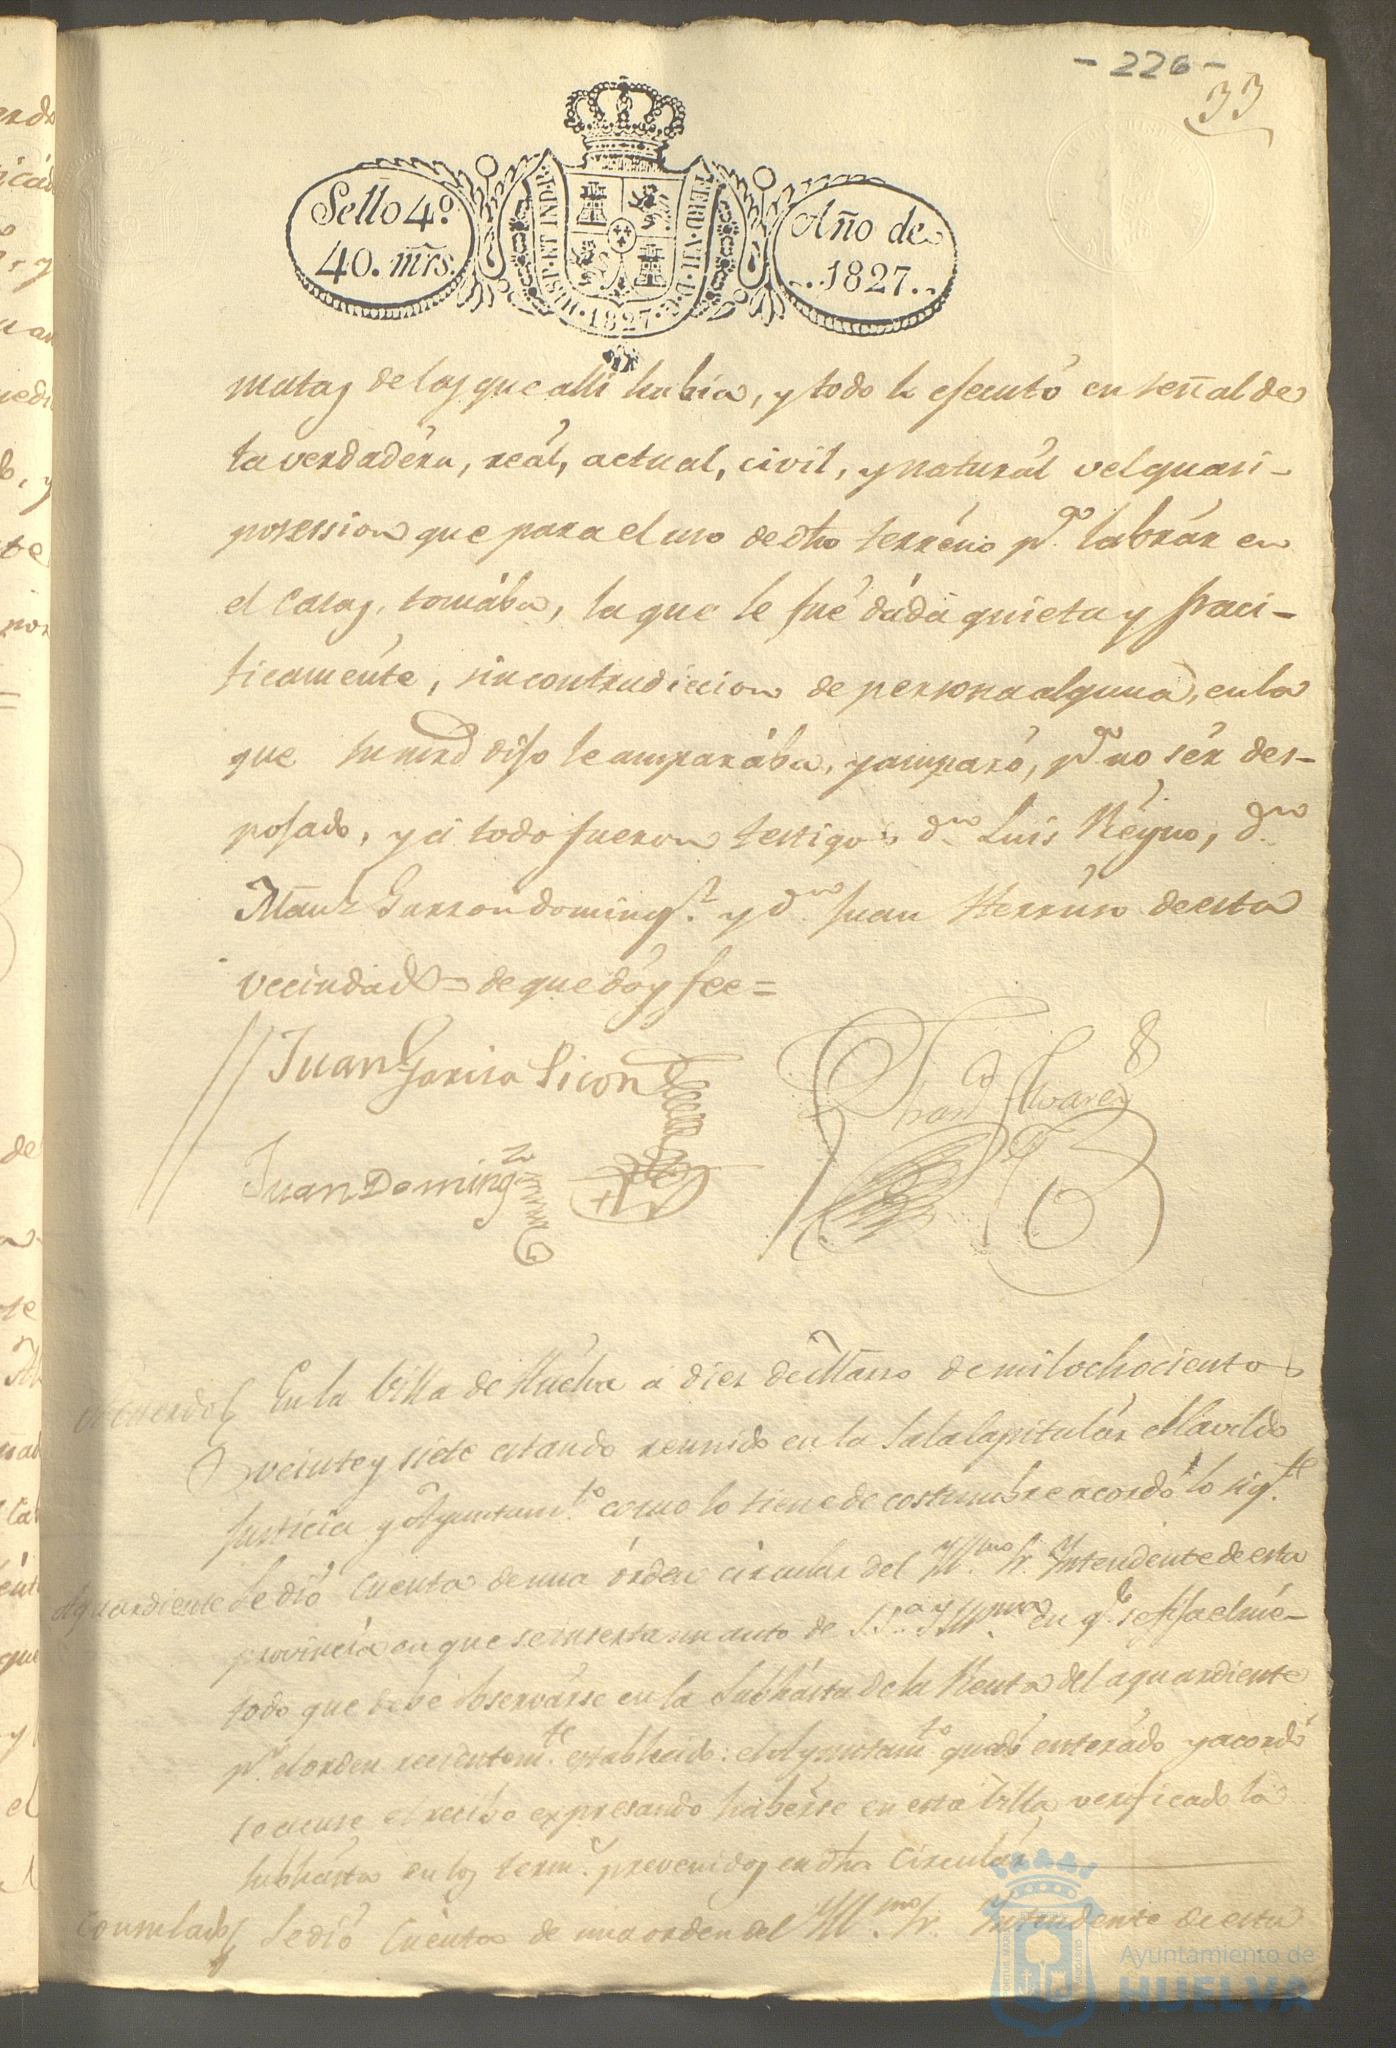 - 226 -
33
Sello 4º
40. mrs.
HISP. ET IND. R.
FERD. VII. D. G.
1827
Año de
1827
matas de las que alli habia, y todo lo ejecutó en señal de
la verdadéra, reál, actual, civil, y naturál vel quasi-
posession que para el uso de dho terréno pª. labrár en
el Caray. tomába, la que le fué dáda quieta y paci-
ficaménte, sin contradiccion de persona alguna, en la
que su mrd dijo le amparába, y amparó, pª. no sér des-
pojado, y á todo fueron testigos dn. Luis Réyno, dn.
Manl Garzon domingz. y dn. Juan Herrúso de esta
vecindad = de que dóy fee =
Juan Garcia Picon
Juan Doming.z
Alvarez
Acuerdo En la Villa de Huelva á diez de Marzo de mil ochocientos
veinte y siete estando reunido en la Sala Capitulár el Cavildo
Justicia y Ayuntam.to como lo tiene de costumbre acordó lo sig.te
Aguardiente Se dió cuenta de una órden circular del Yll.mo Sr. Yntendente de esta
provincia en que se inserta un auto de S.Sª. Y Yllma. en q.e se fija el mé-
todo que debe observárse en la Subhásta de la Renta del aguardiente
pr. el orden recientem.te establecido: el Ayuntam.to quedó enterádo y acordó
se acuse el recibo expresando habérse en esta Villa verificado la
subhásta en los term.s prevenidos en dha Circulár
Consulado Se dió Cuenta de una orden del Yll.mo Sr. Yntendente de esta
Ayuntamiento de
HUELVA